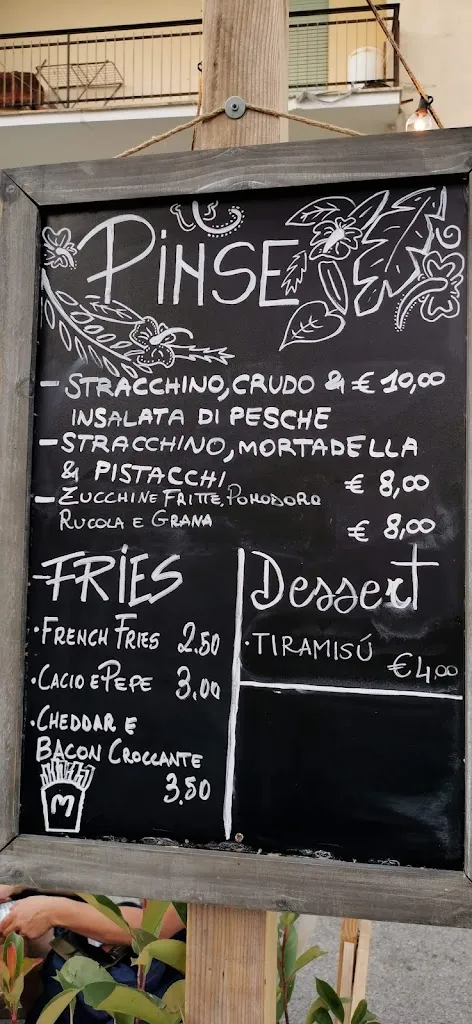 PINSE
- STRACCHINO, CRUDO & € 10,00
INSALATA DI PESCHE
- STRACCHINO, MORTADELLA
& PISTACCHI € 8,00
- ZUCCHINE FRITTE, POMODORO
RUCOLA E GRANA € 8,00
FRIES
· FRENCH FRIES 2.50
· CACIO E PEPE 3,00
· CHEDDAR E
BACON CROCCANTE
3,50
M
Dessert
· TIRAMISÚ
€4,00